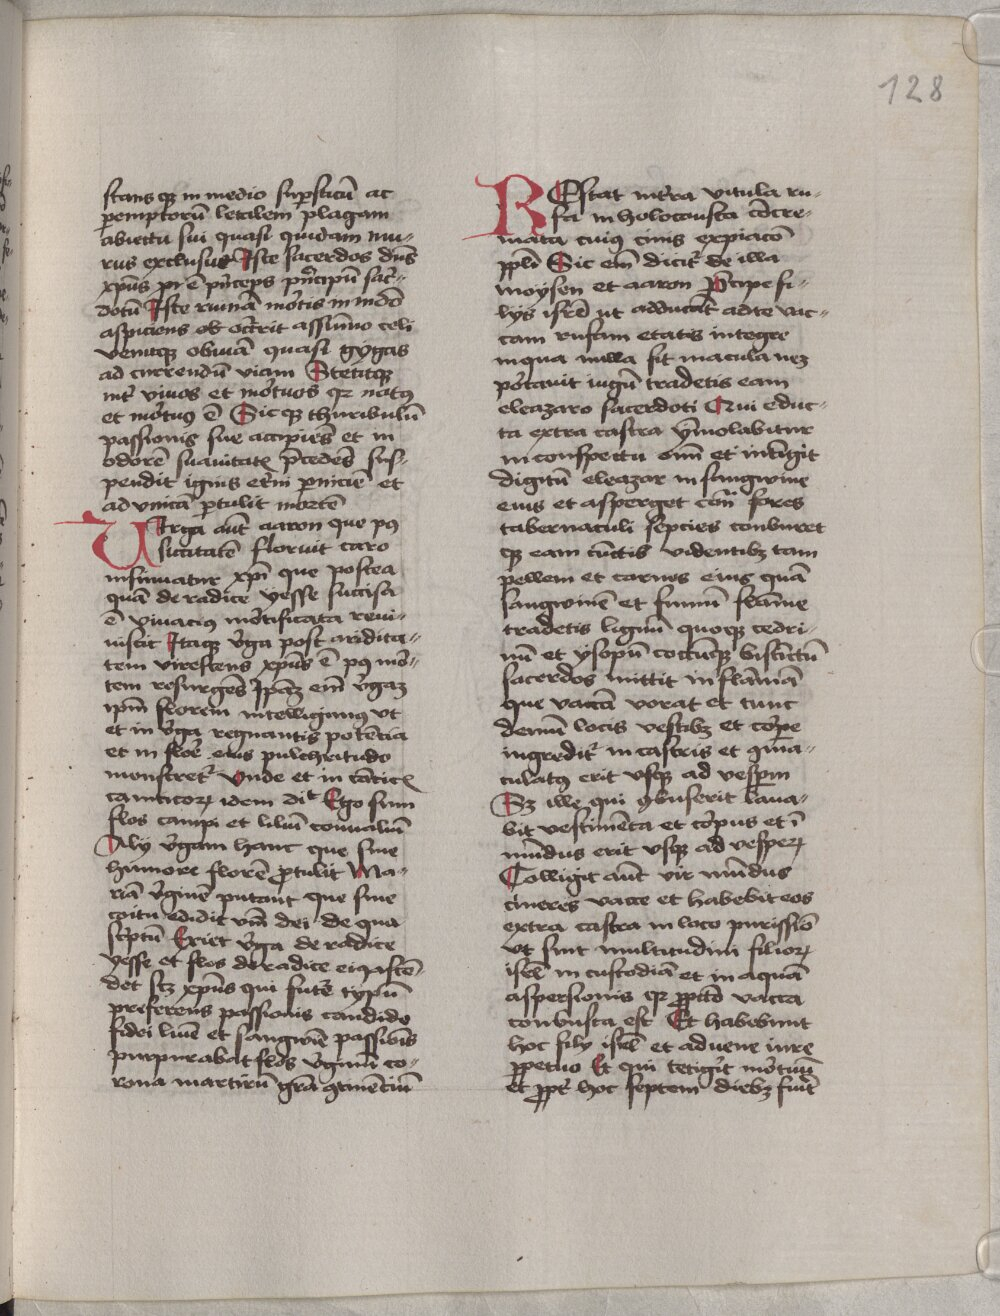 128
stansq3 in medio sup̄sticū ac
peremptorū letalem plagam
abiectu sui quasi quidam mu-
rus exclusit Iste sacerdos dn̄s
xp̄us pr̄ ē pͥnceps pͥncipū sac̄-
dotū Iste ruinā mōtis in mūdo
aspiciens ob occ̄rit a sum̄o celi
venitq3 obuiā quasi gygas
ad currendū viam Stetitq3
int̄ viuos et mōtuos qꝛ natꝰ
et mōtuꝰ ē Sicq3 thuribulū
passionis sue accipiēs et in
odorē suauitatꝭ p̄cedēs sus-
pendit ignis et̄ni pniciē et
ad vnicā ꝓtulit mortē
VIrga aut̄ aaron que pꝰ
siccitatē floruit caro
insinuatur xp̄i que postea
quā de radice yesse succisa
ē viuaciꝰ mōtificata reui-
uiscit Itaq3 v̄ga post aridita-
tem virescens xp̄us ē pꝰ mō-
tem resurgēs Ip̄am em̄ v̄gaꝫ
ip̄m florem intelligimꝰ vt
et in v̄ga regnantis potētia
et in flor̄ eius pulchritudo
monstret᷑ Vnde et in cāticꝭ
canticoꝝ idem diͭ Ego sum
flos campi et liliū conualliū
Alij v̄gam hanc que sine
humore florē ꝓtulit Ma-
riā v̄ginē putant que sine
coitu edidit vm̄ dei de qua
sc̄ptū Exiet v̄ga de radice
yesse et flos de radice eiꝰ ascēn-
det scꝫ xp̄us qui futꝛē typū
preferens passionis candido
fidei lumē et sangwīe passiōis
purpurabat flos v̄ginū co-
rona martirū grā 9tinēciū
REstat int̄ea vitula ru-
fa in holocausta cōcre-
mata cuiꝰ cinis expiacō
ppl̄i Sic em̄ dicit᷑ de illa
moysen et aaron Pͥcipe fi-
lijs isrl̄ ut adducāt ad te vac-
cam rufam etatis integre
in qua nulla sit macula neꝫ
portauit iugū tradetis eam
eleazaro sacerdoti Qui educ-
ta extra castra ymolabitur
in conspectu om̄ et intīgit
digitū eleazar in sangwine
eius et asperget cōtͣ fores
tabernaculi septies comburet
q3 eam cūctis videntibꝫ tam
pellem et carnes eius quā
sangwinē et fimū flāme
tradetis lignū quoq3 cedri-
nū et ysopū coccūq3 bistīctū
sacerdos mittit in flāmā
que vaccā vorat et tunc
demū lotis vestibꝫ et corp̄e
ingredit᷑ in castris et 9ma-
culatꝰ erit vsq3 ad vesperum
Sꝫ ille qui 9buserit laua-
bit vestimēta et corpus et ī
mūdus erit vsq3 ad vesperꝝ
Colligit aut̄ vir mūdus
cineres vacce et habebit eos
extra castra in loco purissīo
vt sint multitudini filioꝝ
isrl̄ in custodiā et in aquā
aspersionis qꝛ ꝓ pctō vacca
combusta est Et habebunt
hoc filij isrl̄ et aduene iure
ꝑpetuo Et qui tetigͥt mōtuū
et ꝓpt̄ hoc septem diebꝫ fuīt